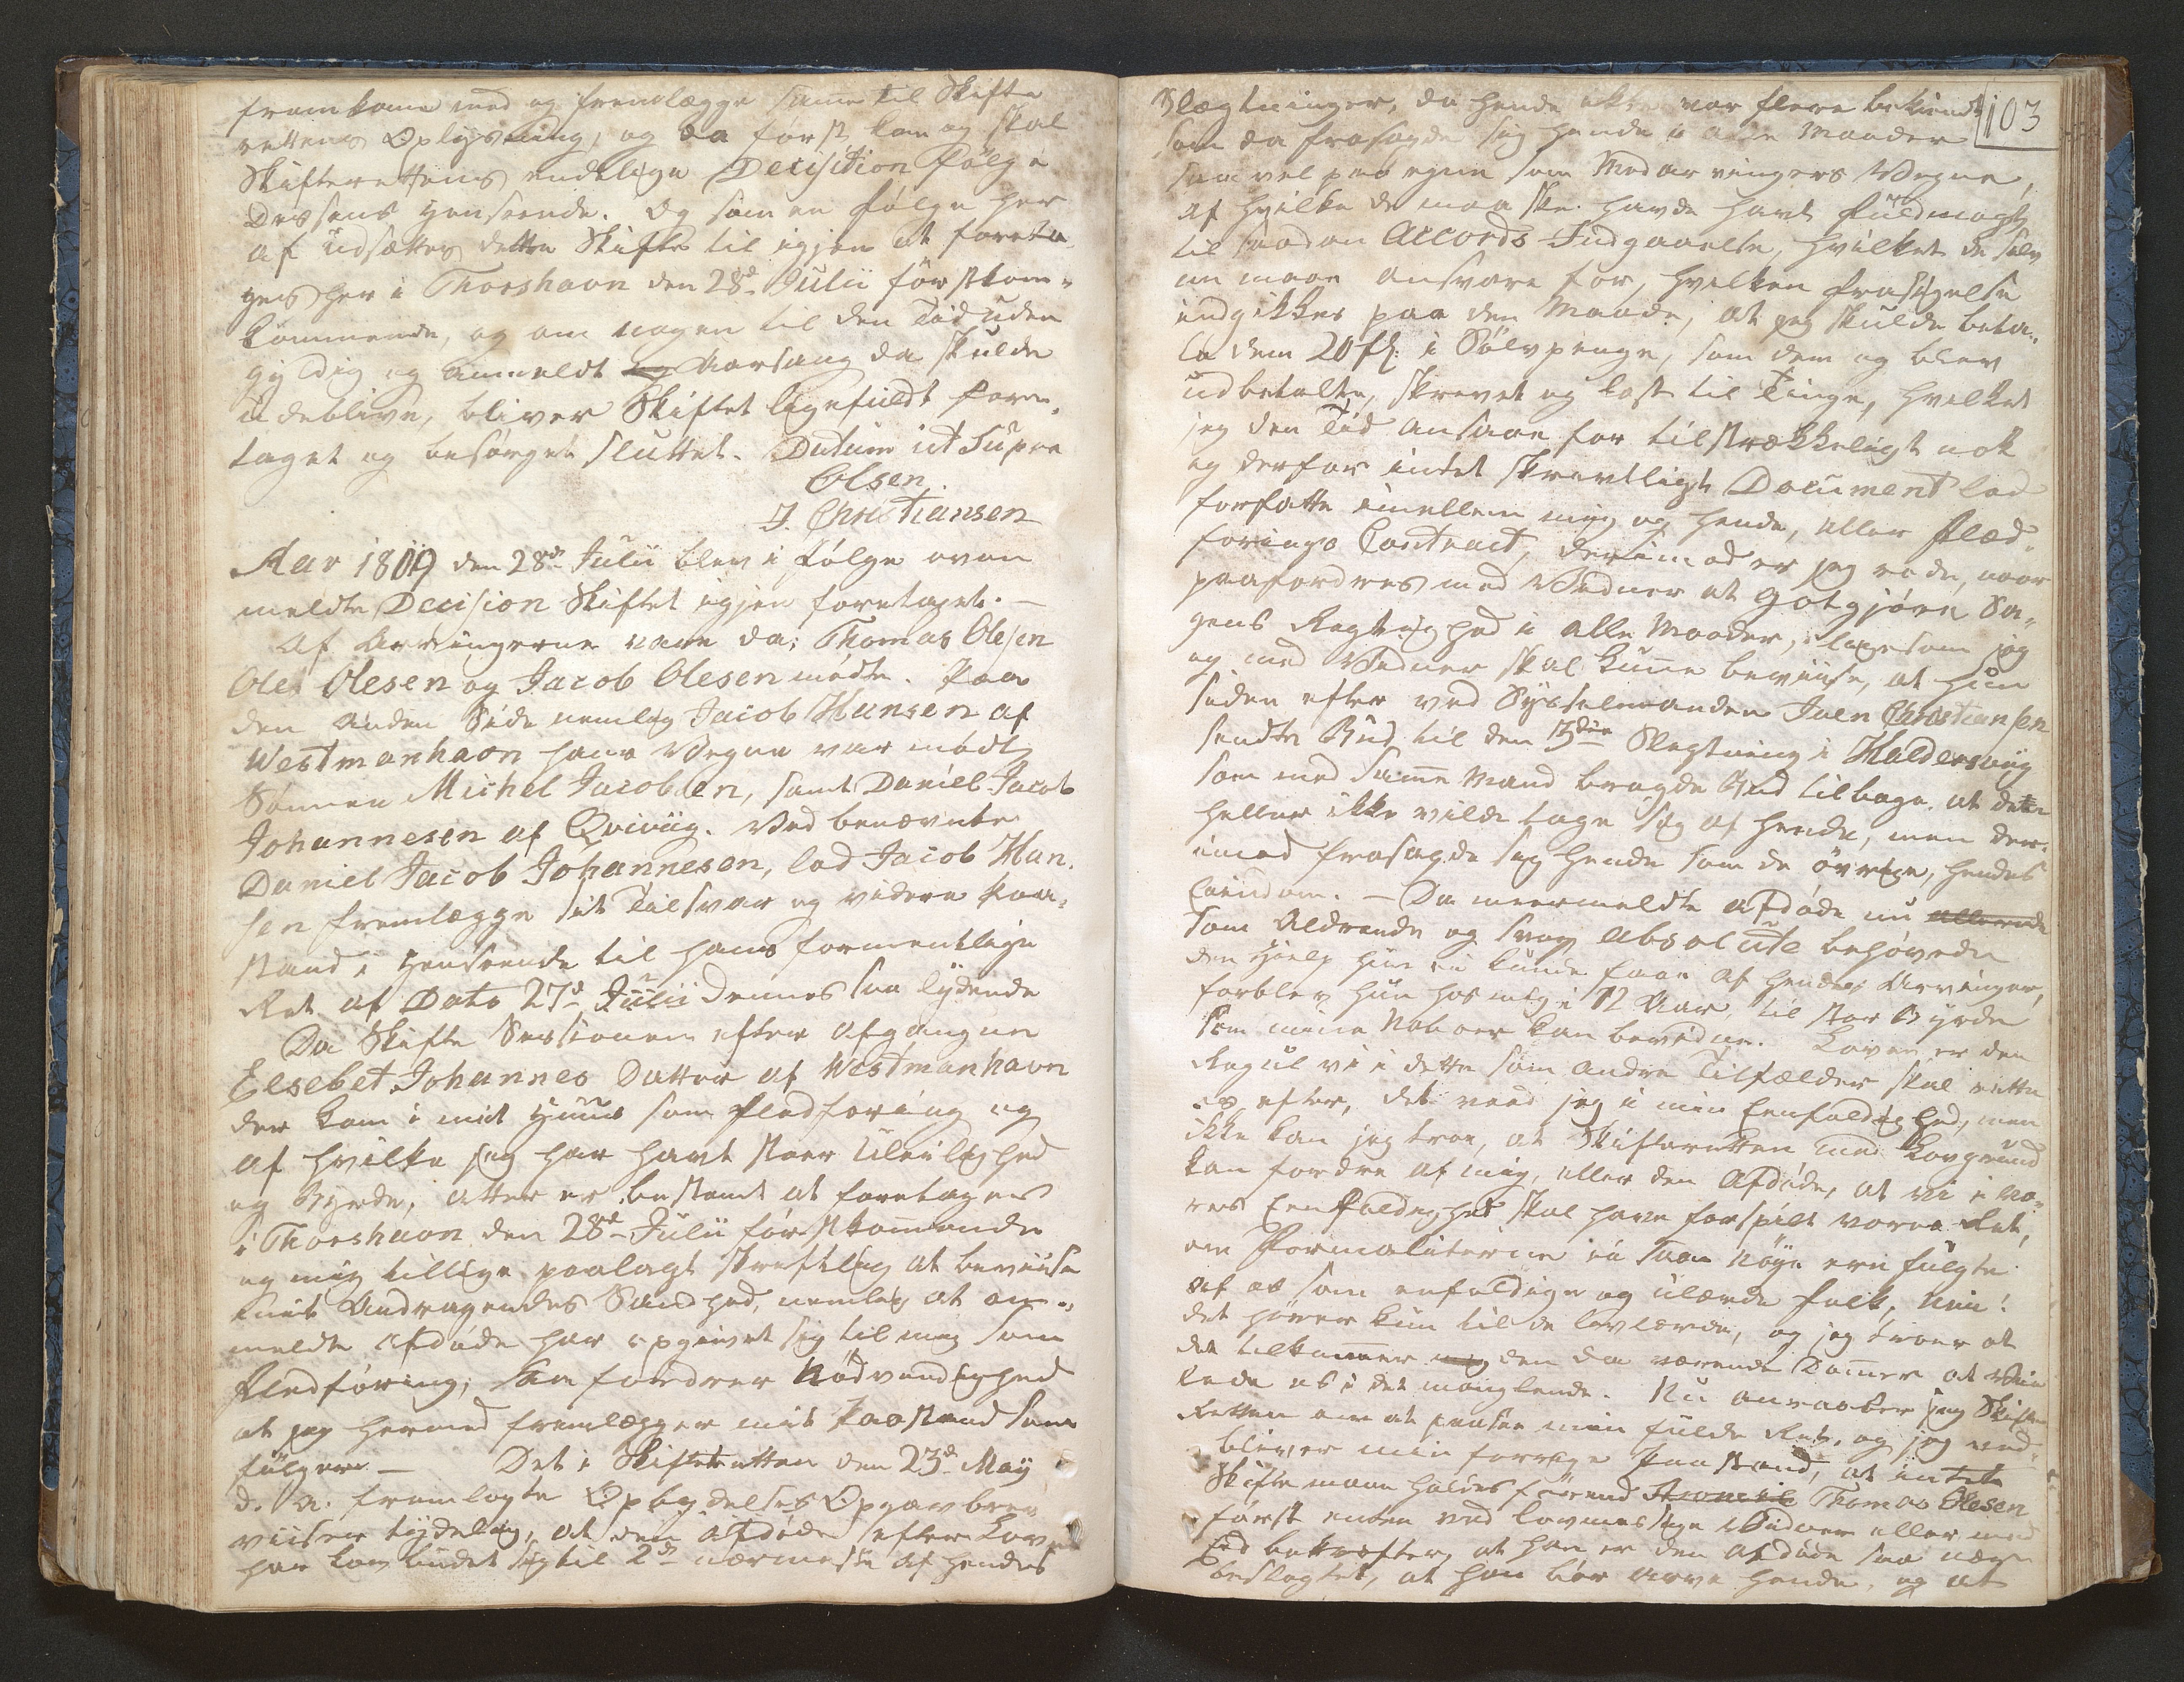 fremkomme med og fremlægge samme til Skifte
rettens Oplysning, og da först kan og skal
Skifterettens endelige Decisition fölge i
Dessens Henseende. Og som en fölge her
af udsættes dette Skifte til igjen at foreta
ges her i Thorshavn den 28de Julii förstkom-
kommende, og om nogen til den Tid uden
gyldig og anmeldt Aarsaug da skulde
udeblive, bliver Skiftet ligefuldt fore-
taget og besörget sluttet. Datum ut Supra
Olsen.
J. Christiansen
Aar 1809 den 28de Julii blev i Fölge oven
meldte Decision Skiftet igjen foretaget. -
Af Arvingerne vare da: Thomas Olesen
Ole Olesen og Jacob Olesen mödte. Paa
den anden Side nemlig Jacob Hansen af
Westmanhavn hans Vegne var mödt
Sönnen Michel Jacobsen, samt Daniel Jacob
Johannesen af Qviviig. Ved benævnte
Daniel Jacob Johannesen, lod Jacob Han-
sen fremlægge sit Tilsvar og videre Paa-
stand i Henseende til hans formentlige
Ret af Dato 27de Julii dennes saa lydende
Da Skifte Sessionen efter afgangne
Elsebet Johannes Datter af Westmanhavn
der kom i mit Huus som Fledföring og
af hvilke jeg har havt stoer Uleilighed
og Byrde, atter er bestemt at foretages
i Thorshavn den 28de Julii förstkommende
og mig tillige paalagt skriftlig at beviise
mit Andragendes Sandhed, nemlig at an-
meldte afdöde har opgivet sig til mig som
Fledföring; saa fordrer Nödvendighed
at jeg hermed fremlægger mit Paastand som
fölger. - Det i Skifteretten den 23de May
d. A. fremlagte Opbydelses Opgav brev
viiser tydelig, at den afdöde efter Loven
har tilbudet sig til 2de nærmeste af hendes
103
Slægtninger, da hende ikke var flere bekiendt
som da frasagde sig hende i alle Maader
saavel paa egne som Medarvingers Vegne,
af hvilke de maa ske havde havt fuldmagt
til saadan Accords Indgaaelse, hvilket de selv
nu maae ansvare for, hvilken frasigelse
indgikkes paa den Maade, at jeg skulde beta-
la dem 20 fl: i Sölvpenge, som dem og blev
udbetalte, skrevet og læst til Tinge, hvilket
jeg den Tid ansaae for tilstrækkeligt nok
og derfor intet skrevtligt Document lod
forfatte imellem mig og hende, eller Flæd-
förings Contract, derimod er jeg rede, naar
paafordres med Vidner at gotgjöre Sa-
gens Rigtighed i alle Maader, ligesom jeg
og med Vidner skal kunne beviise, at hun
siden efter ved Sysselmanden Joen Christiansen
sendte Bud til den 3die Slegtning i Haldersviig
som med samme Mand bragde Bud tilbage, at dette
heller ikke vilde tage sig af hende, men der-
imod frasagde sig hende som de övrige, hendes
Eiendom. - Da meermeldte afdöde nu
som aldrende og svag absolute behövede
den Hielp hun ei kunde faae af hendes Arvinger,
forblev hun hos mig i 12 Aar, til stor Byrde
som mine Naboer kan bevidne. Loven er den
Regul vi i dette som andre Tilfælder skal rette
os efter, det veed jeg i min Eenfoldighed, men
ikke kan jeg troe, at Skifteretten med Lovgrund
kan fordre af mig, eller den Afdöde, at vi i vo-
res Eenfoldighed skal have forspilt vores Ret,
om Formaliterne ei saa nöye ere fulgte
af os som enfoldige og ulærde folk, Nei!
det hörer kun til de lovlærde, og jeg troer at
det tilkommer den da værende Dommer at vei
lede os i det manglende. Nu anraaber jeg Skifte
Retten om at paasee min fulde Ret, og jeg ved-
bliver min forrige Paastand, at intet
Skifte maae holdes förend Thomas Olesen
först enten ved lovmessige Vidner eller med
Eed bekræfter, at han er den afdöde saa nær
beslægtet, at han bör arve hende, og at